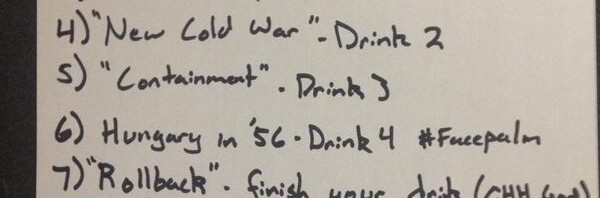 4) "New Cold War" - Drink 2
5) "Containment" - Drink 3
6) Hungary in '56 - Drink 4 #Facepalm
7) "Rollback" - finish your drink